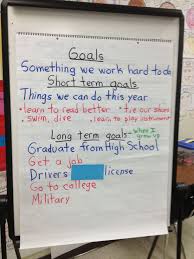 Goals
Something we work hard to do
Short term goals
Things we can do this year
• learn to read better • tie our shoes
• swim, dive • learn to play instrument
Long term goals - when I grow up
Graduate from High School
Get a job
Drivers license
Go to college
Military